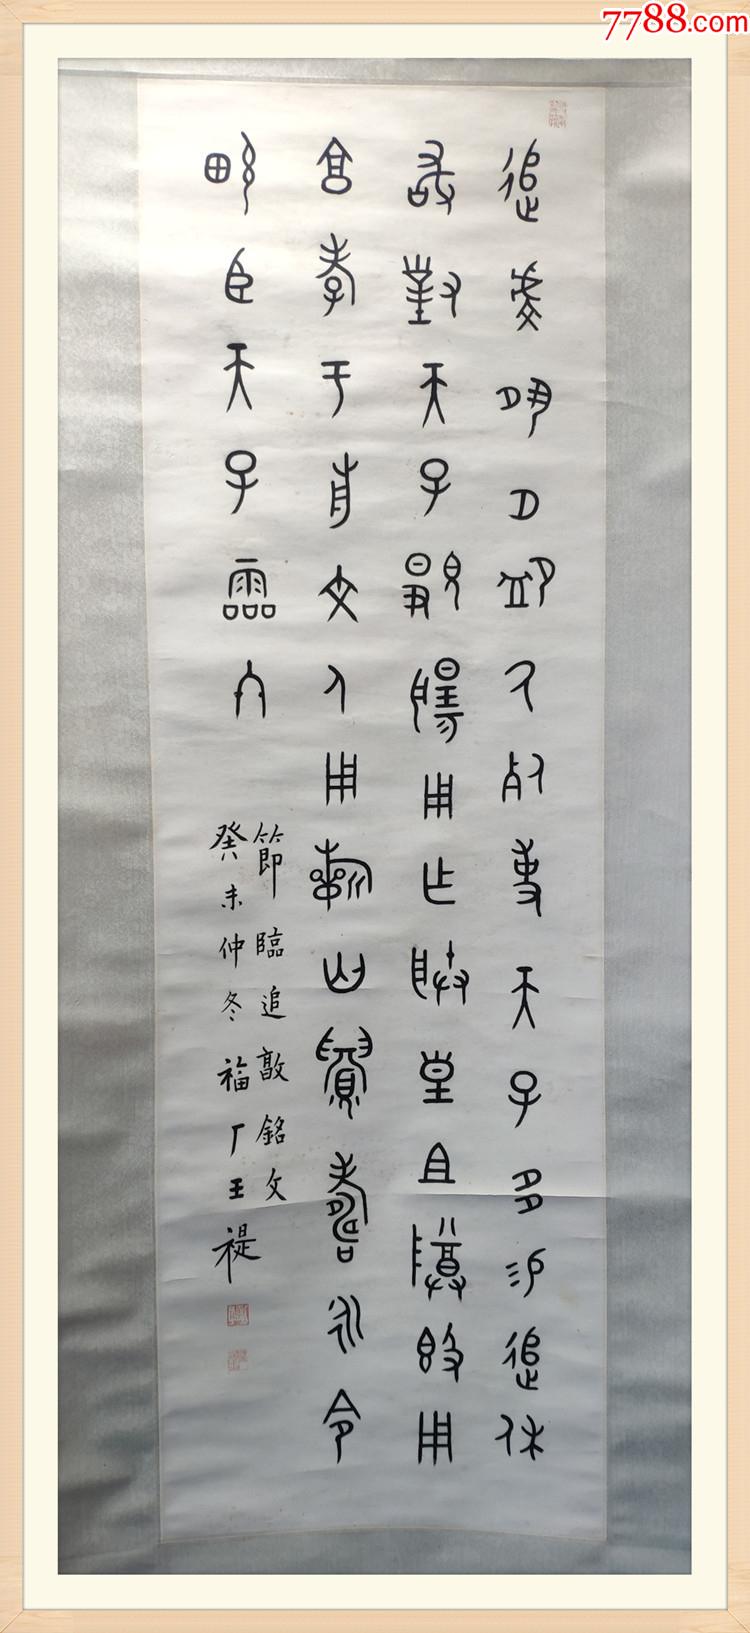 7788.com
追虔夙夕卹氒死事天子多易追休
敢對天子覭揚用乍朕皇且尊𣪘用
享孝于前文人用祈匄眉壽永令
畯臣天子霝冬
節臨追敦銘文
癸未仲冬福厂王禔